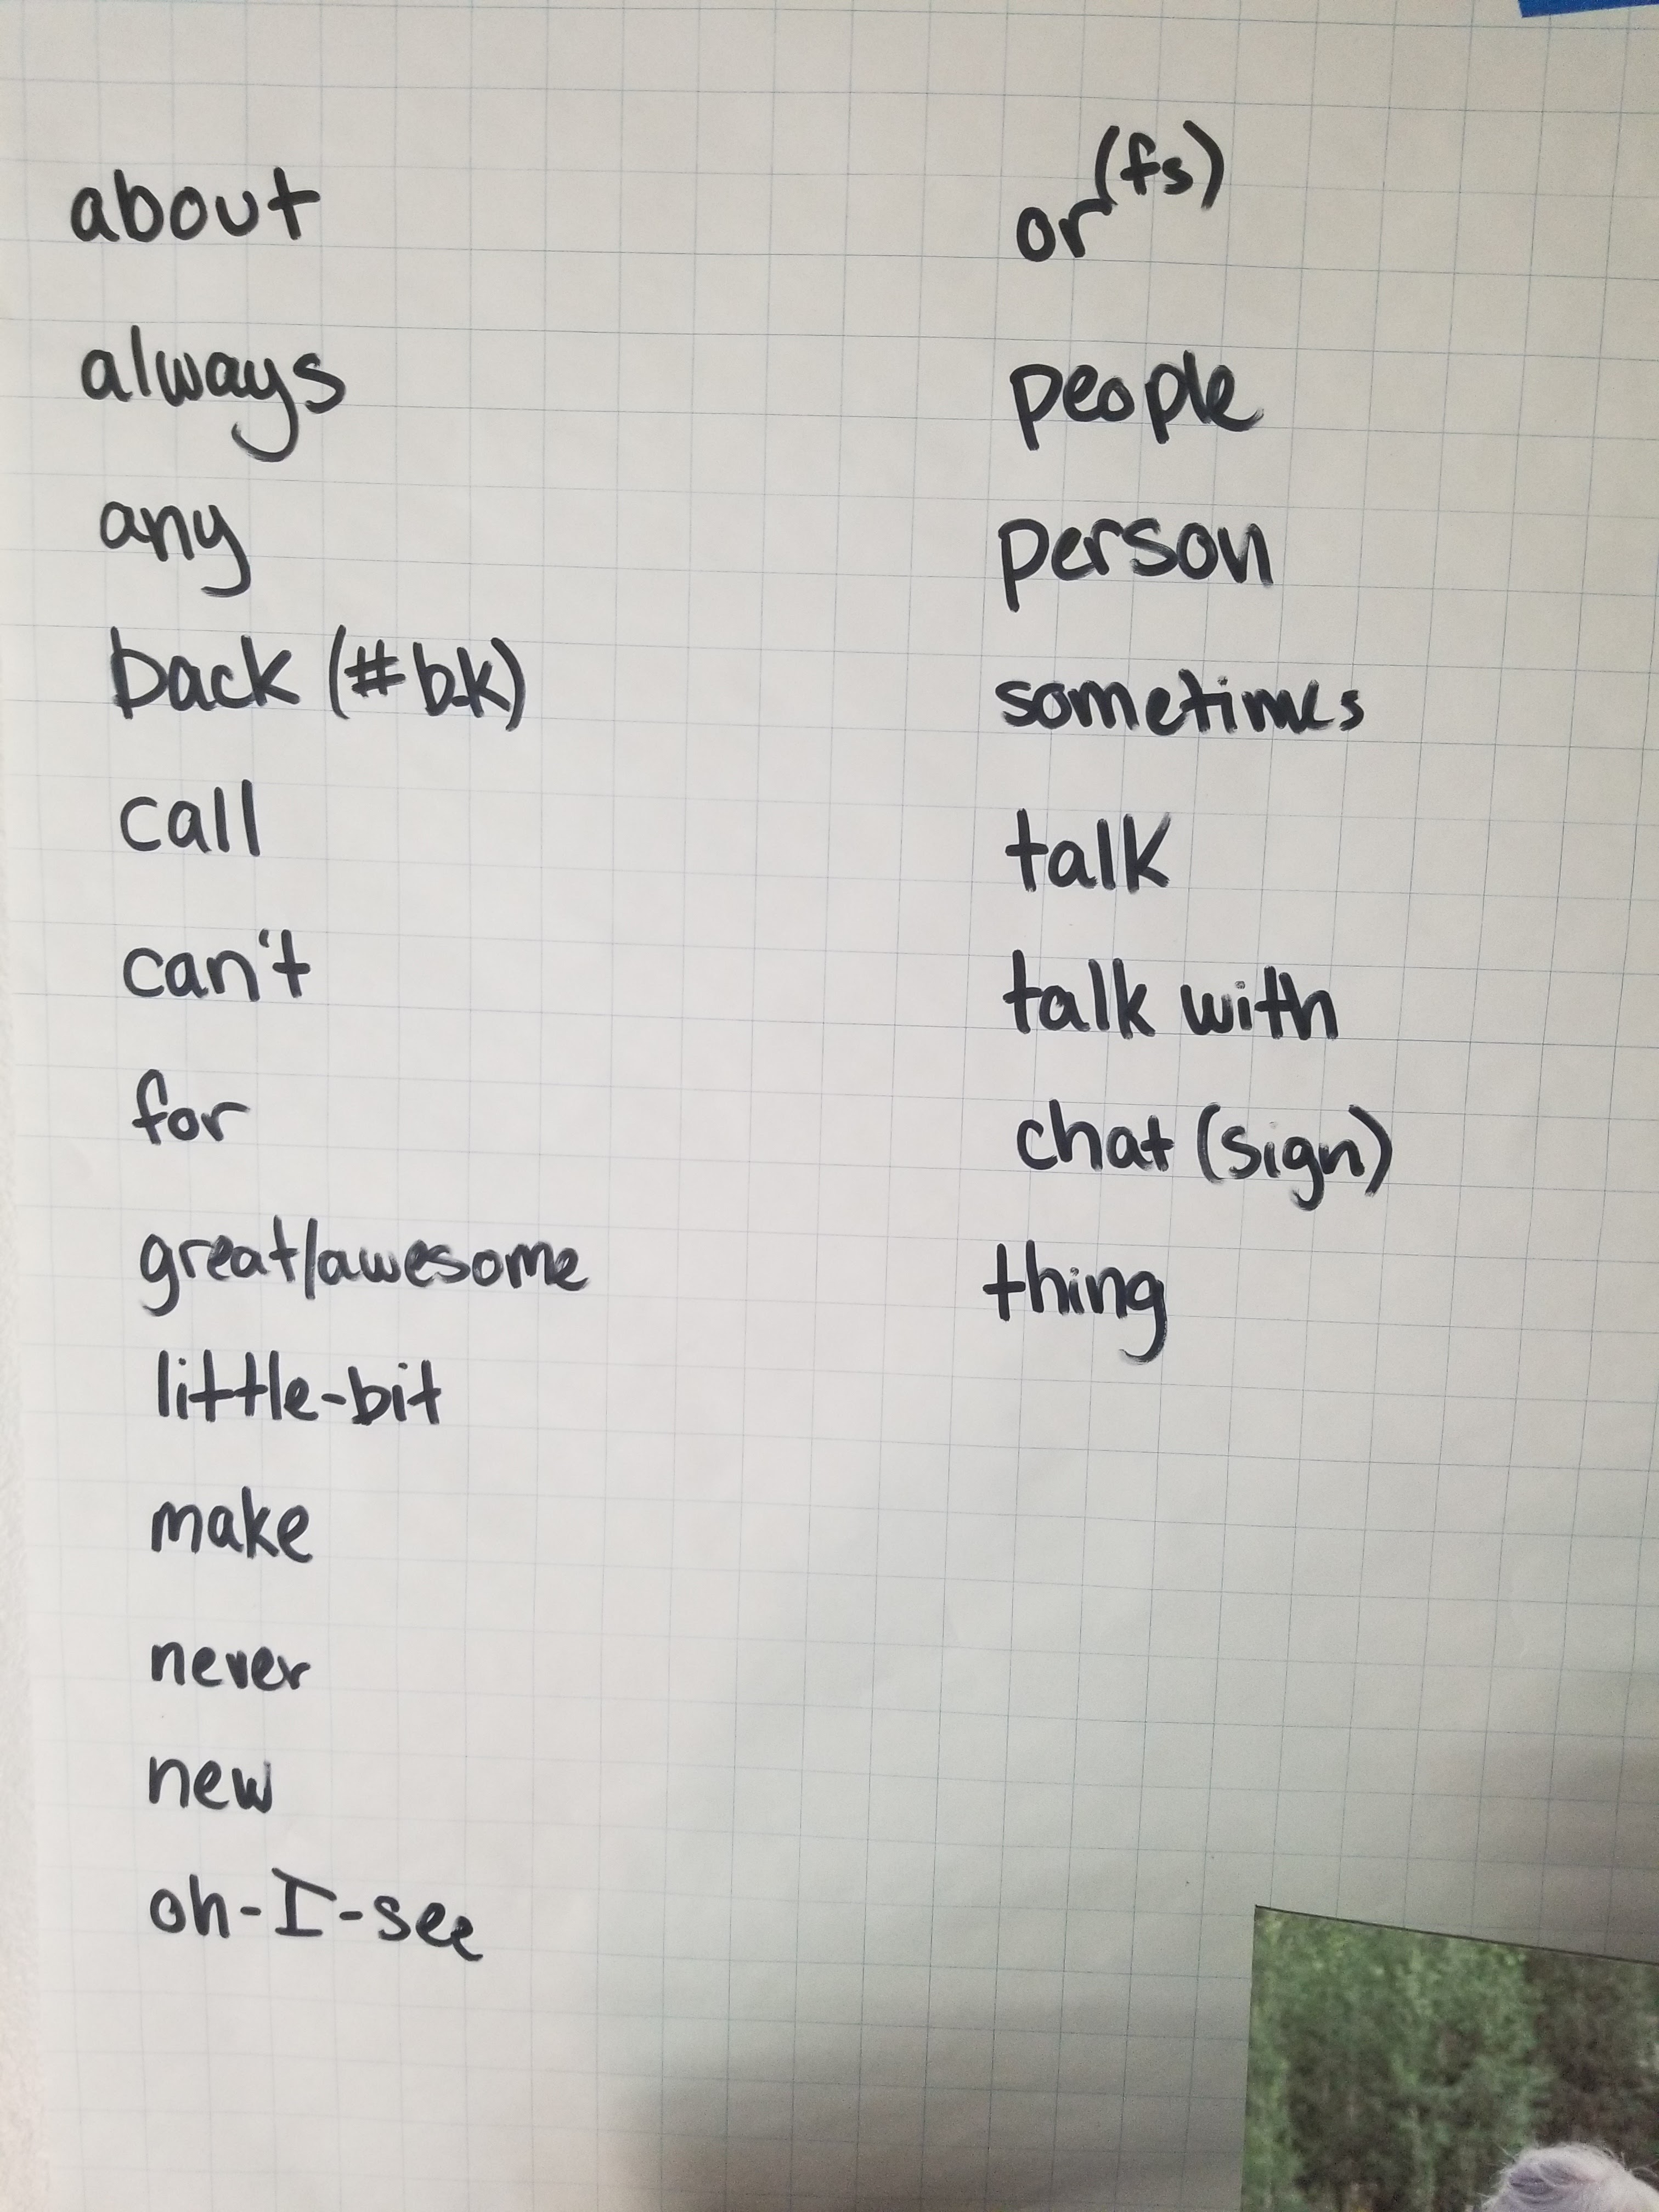 about
always
any
back (#bk)
call
can't
for
great/awesome
little-bit
make
never
new
oh-I-see
or (fs)
people
person
sometimes
talk
talk with
chat (sign)
thing